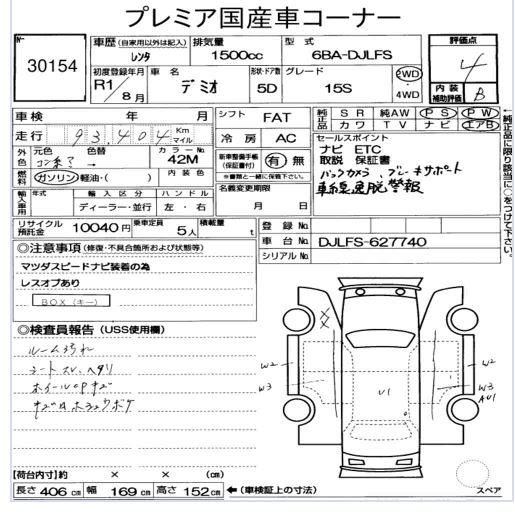 プレミア国産車コーナー
№ 30154
車歴 (自家用以外は記入) レンタ
排気量 1500cc
型式 6BA-DJLFS
評価点 4
初度登録年月 R1/8月
車名 デミオ
形状・ドア数 5D
グレード 15S
2WD 4WD
内装補助評価 B
車検 年 月
シフト FAT
純正品 SR 純AW PS PW
カワ TV ナビ エアB
走行 93,404 Km マイル
冷房 AC
セールスポイント
ナビ ETC
取説 保証書
バックカメラ ブレーキサポート
車線逸脱警報
外色 元色 色替
カラーNo. 42M
新車整備手帳 (保証書付) 有 無
※書類と一緒に保管下さい。
燃料 ガソリン・軽油・( )
内装色
名義変更期限 月 日
輸入車用 年式 輸入区分 ハンドル
ディーラー・並行 左・右
←純正品に限り該当に○をつけて下さい。
リサイクル預託金 10040円
乗車定員 5人
積載量 t
登録No.
車台No. DJLFS-627740
シリアルNo.
◎注意事項 (修復・不具合箇所および状態等)
マツダスピードナビ装着の為
レスオプあり
BOX(キー)
◎検査員報告 (USS使用欄)
ルーム汚れ
シートスレ、ヘタリ
ホイールCPキズ
W2
W3
U1
W2
W3
AU1
【荷台内寸】約 × × (cm)
長さ 406 cm 幅 169 cm 高さ 152 cm ←(車検証上の寸法)
スペア